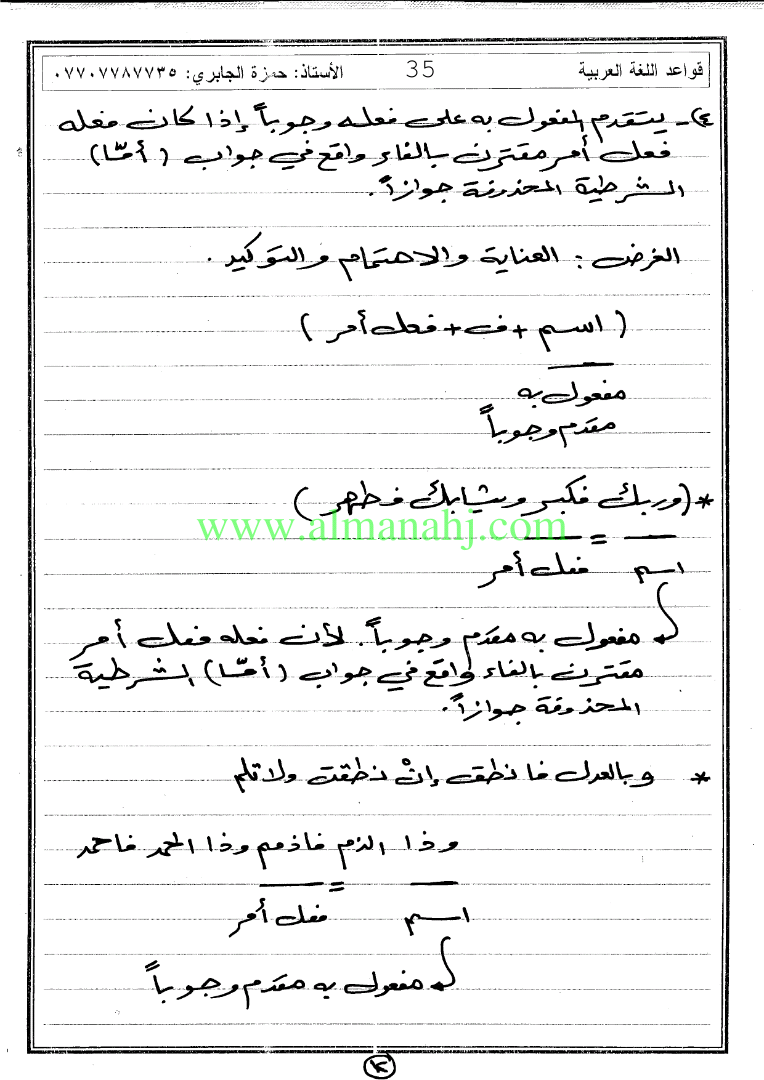 قواعد اللغة العربية 35 الأستاذ: حمزة الجابري: ٠٧٧٠٧٧٨٧٧٣٥
٤)- يتقدم المفعول به على فعله وجوباً إذا كان فعله
فعل أمر مقترن بالفاء واقع في جواب (أمّا)
الشرطية المحذوفة جوازاً.
الغرض: العناية والاهتمام والتوكيد.
(اسم + ف + فعل أمر)
مفعول به
مقدم وجوباً
* (وربك فكبر وثيابك فطهر)
www.almanahj.com
اسم فعل أمر
مفعول به مقدم وجوباً. لأن فعله فعل أمر
مقترن بالفاء واقع في جواب (أمّا) الشرطية
المحذوفة جوازاً.
* وبالعدل فانطق إنْ نطقت ولا تلم
وذا الذم فاذمم وذا الحمد فاحمد
اسم فعل أمر
مفعول به مقدم وجوباً